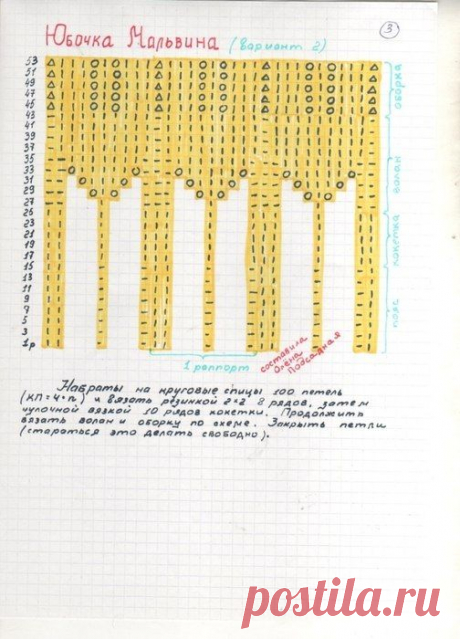 3
Юбочка Мальвина (вариант 2)
53
51
49
47
45
43
41
39
37
35
33
31
29
27
25
23
21
19
17
15
13
11
9
7
5
3
1р
оборка
волан
кокетка
пояс
1 раппорт
составила
Олёна
Подсадная
Набрать на круговые спицы 100 петель
(КП=4·n) и вязать резинкой 2×2 8 рядов, затем
чулочной вязкой 10 рядов кокетки. Продолжить
вязать волан и оборку по схеме. Закрыть петли
(стараться это делать свободно).
postila.ru